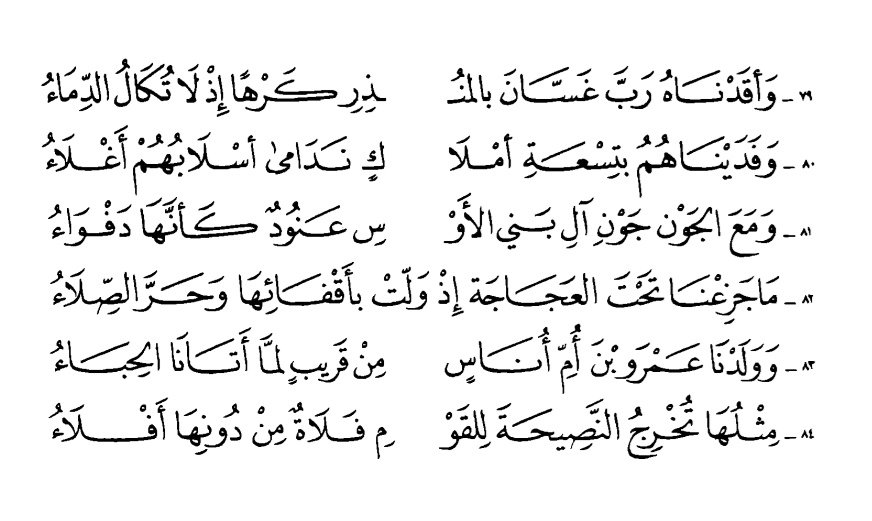 ٧٩ - وَأقَدْنَاهُ رَبَّ غَسَّانَ بالمنُـ ـذِرِ كَرْهًا إِذْ لَا تُكَالُ الدِّمَاءُ
٨٠ - وَفَدَيْنَاهُمُ بتِسْعَةِ أمْلَا كٍ نَدَامىٰ أسْلَابُهُمْ أَغْلَاءُ
٨١ - وَمَعَ الجَوْن جَوْنِ آلِ بَني الأَوْ سِ عَنُودٌ كَأنَّهَا دَفْوَاءُ
٨٢ - مَا جَزِعْنَا تَحْتَ العَجَاجَة إِذْ وَلّتْ بأَقْفَائِهَا وَحَرَّ الصِّلَاءُ
٨٣ - وَوَلَدْنَا عَمْرَو بْنَ أُمِّ أُنَاسٍ مِنْ قَرِيبٍ لمَّا أَتَانَا الحِبَاءُ
٨٤ - مِثْلُهَا تُخْرِجُ النَّصِيحَةَ لِلقَوْ مِ فَلَاةٌ مِنْ دُونِهَا أَفْلَاءُ